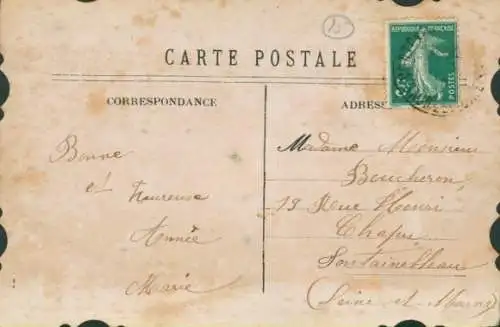 15
RÉPUBLIQUE FRANÇAISE
POSTES
CARTE POSTALE
CORRESPONDANCE
Bonne
et heureuse
Année
Marie
ADRESSE
Madame Monsieur
Boucheron
18 Rue Henri
Chapu
Fontainebleau
(Seine et Marne)